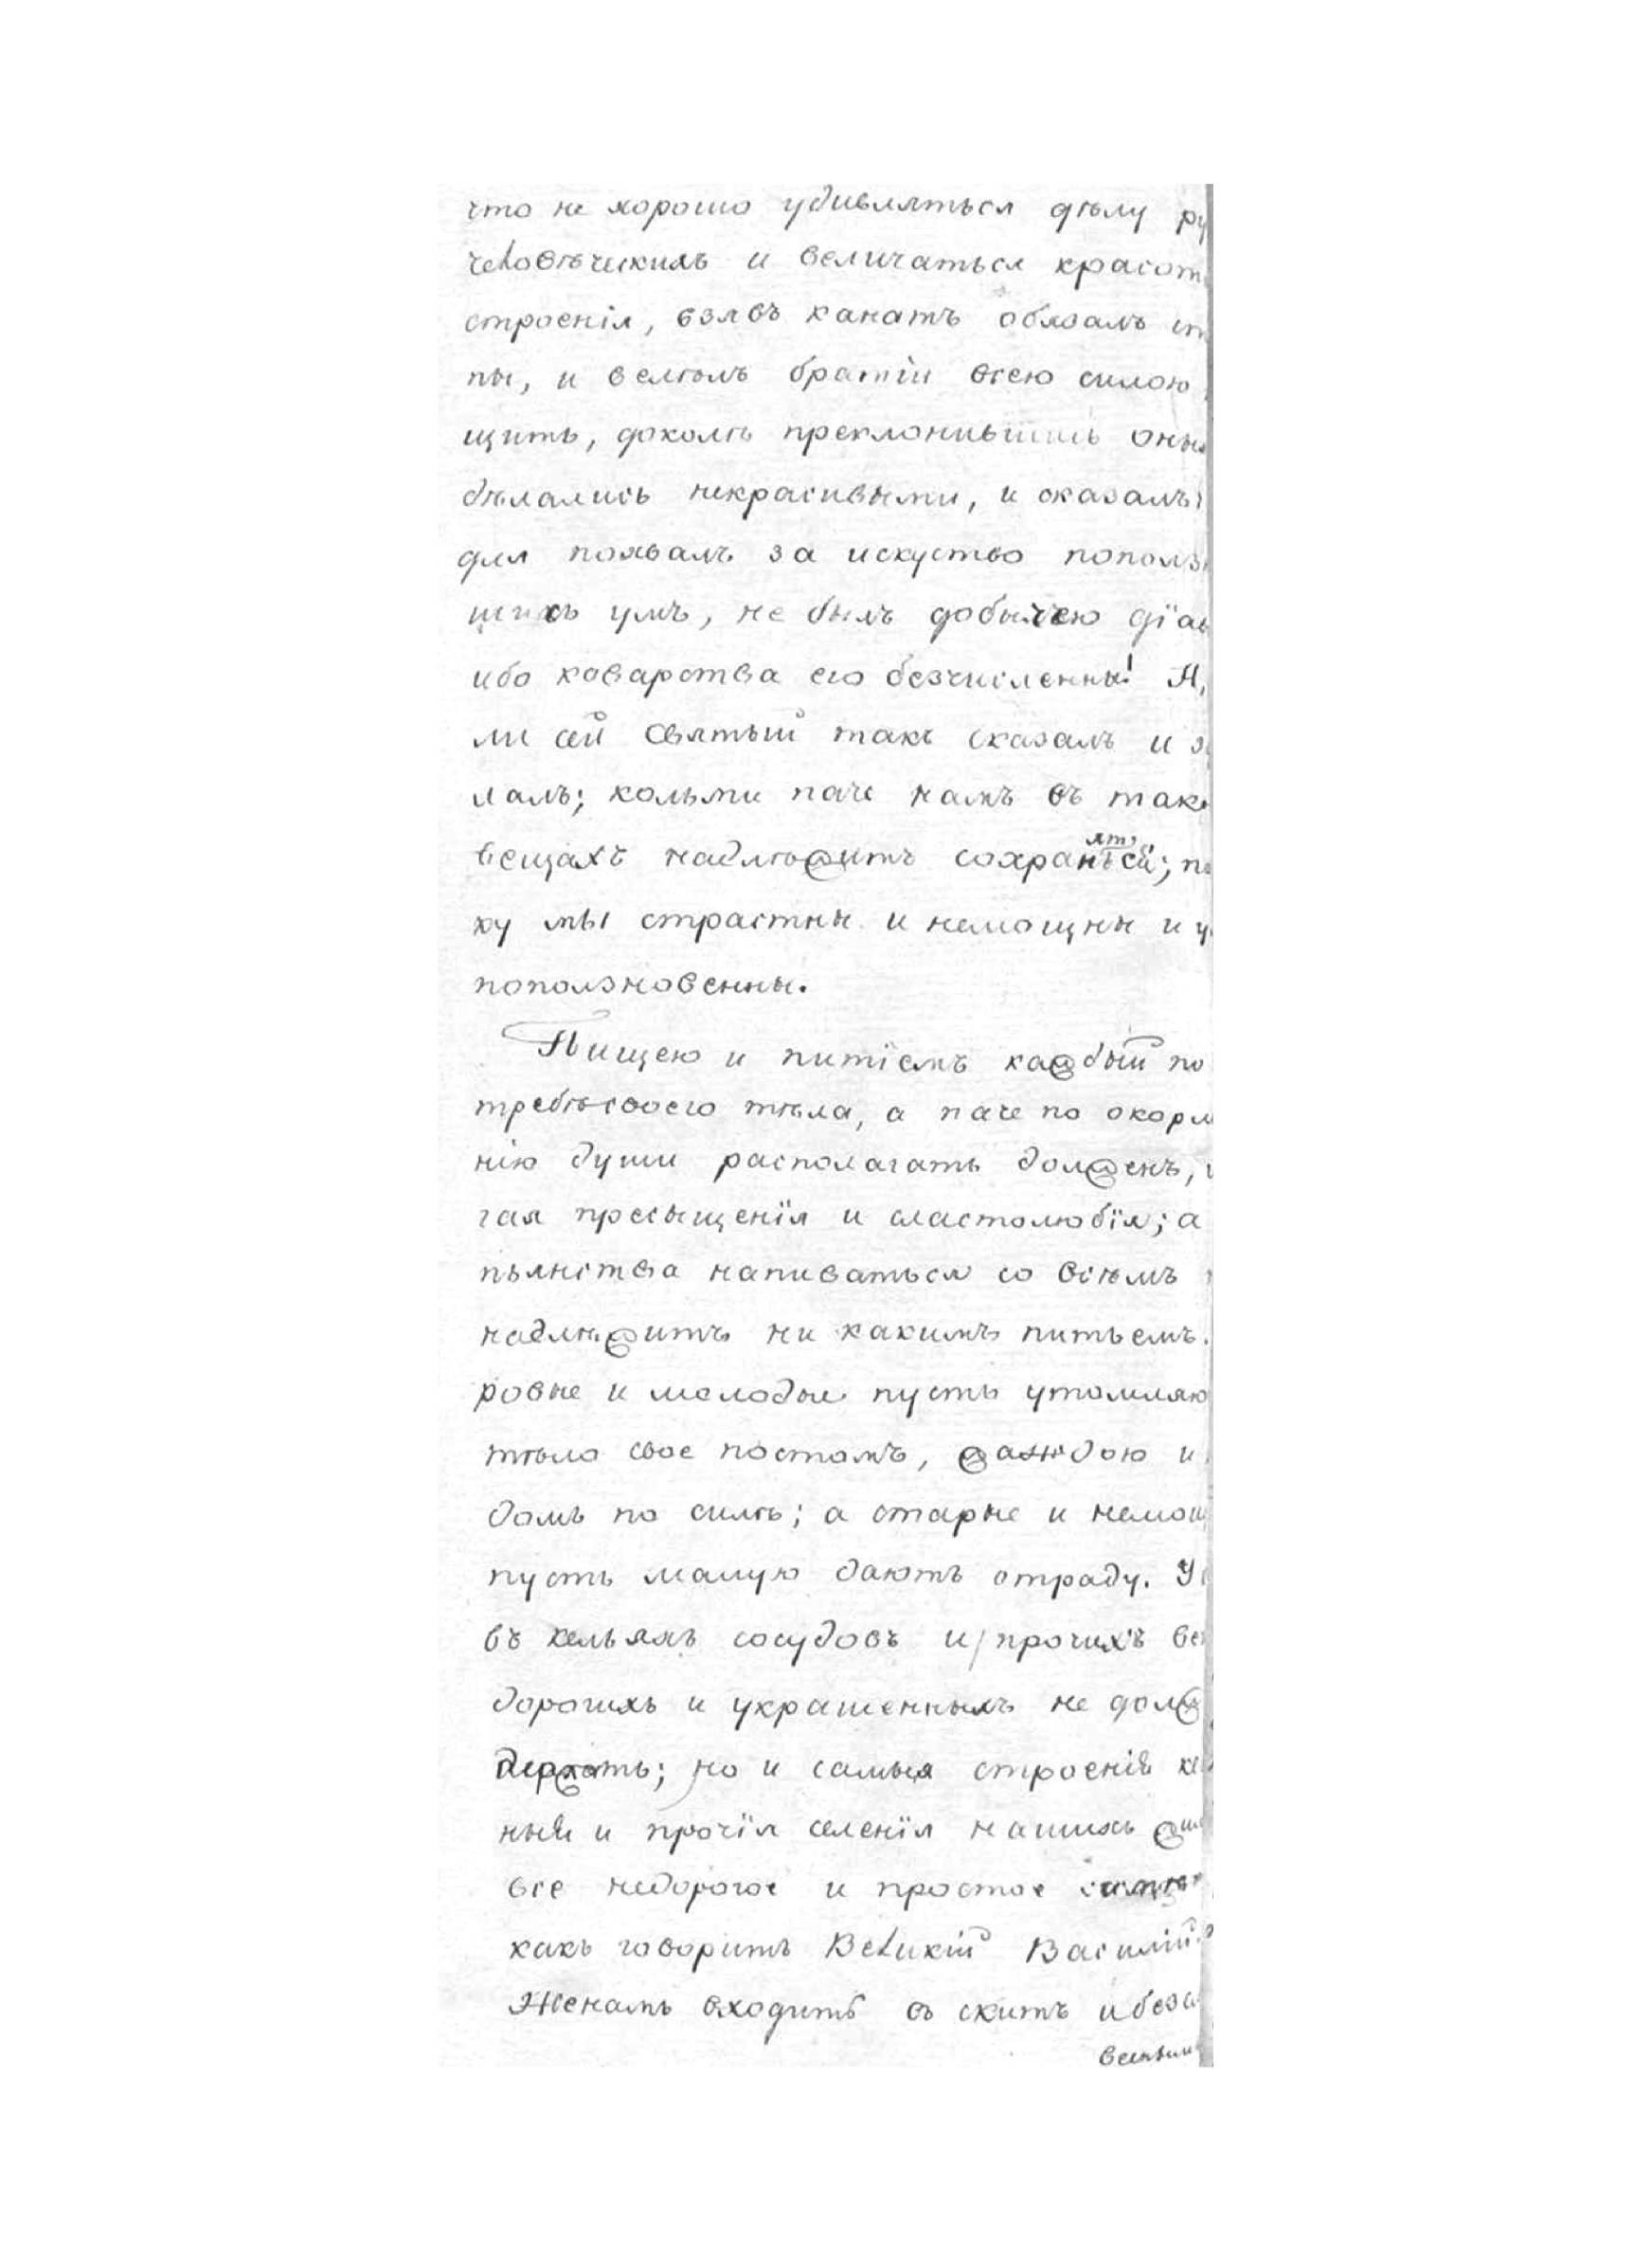 что не хорошо удивляться дѣлу ру
человѣческихъ и величаться красот
строенія, взявъ канатъ обязалъ ст
пы, и велѣлъ братіи всею силою
щить, доколѣ преклонившись оны
дѣлались некрасивыми, и сказалъ:
для похвалъ за искуство поползн
шихъ умъ, не былъ добычею дїав
ибо коварства его безчисленны! А,
ли сей святый такъ сказалъ и з
лалъ; кольми паче намъ въ так
вещахъ надлежитъ сохранятьсѧ; по
ку мы страстны и немощны и у
поползновенны.
Пищею и питїемъ каждый по
требѣ своего тѣла, а паче по окорм
нію души располагать долженъ,
гая пресыщенїя и сластолюбїя; а
пьянства напиваться со всѣмъ
надлѣжитъ ни какимъ питьемъ.
ровые и молодые пусть утомляю
тѣло свое постомъ, жаждою и
домъ по силѣ; а старые и немощ
пусть малую даютъ отраду. У
въ кельяхъ сосудовъ и прочихъ ве
дорогихъ и украшенныхъ не долж
держать; но и самыя строенія ке
ныя и прочїя селенїя нашихъ жи
все недорогое и простое
какъ говоритъ Великій Василій.
Женамъ входить въ скитъ и беза